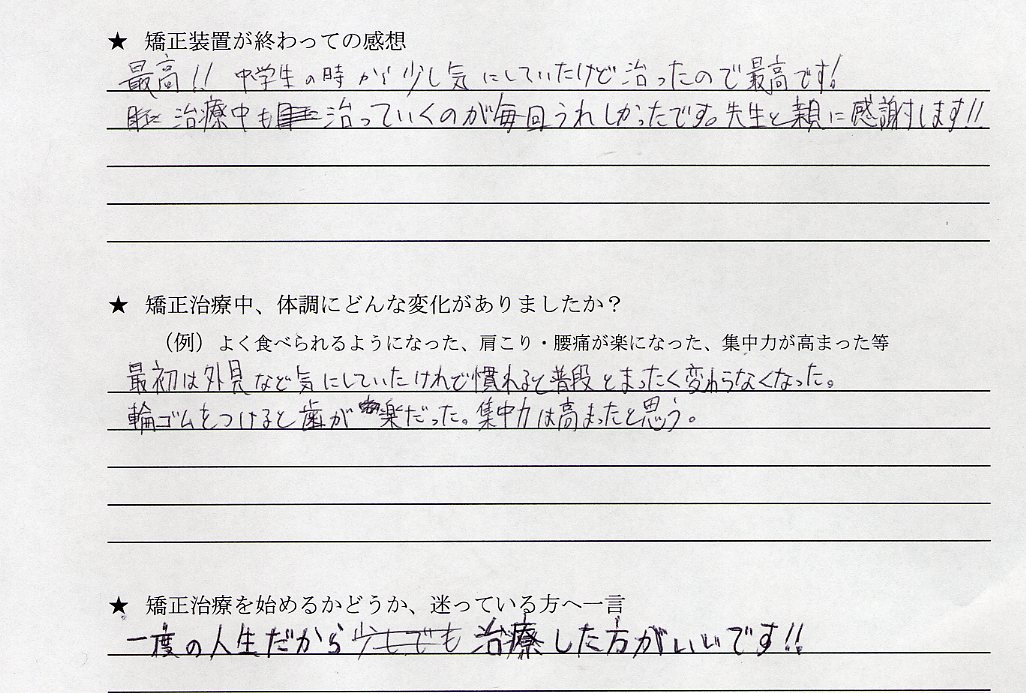 ★ 矯正装置が終わっての感想
最高!! 中学生の時から少し気にしていたけど治ったので最高です!
治療中も治っていくのが毎回うれしかったです。先生と親に感謝します!!
★ 矯正治療中、体調にどんな変化がありましたか？
（例）よく食べられるようになった、肩こり・腰痛が楽になった、集中力が高まった等
最初は外見など気にしていたけれど慣れると普段とまったく変わらなくなった。
輪ゴムをつけると歯が楽だった。集中力は高まったと思う。
★ 矯正治療を始めるかどうか、迷っている方へ一言
一度の人生だから少しでも治療した方がいいです!!